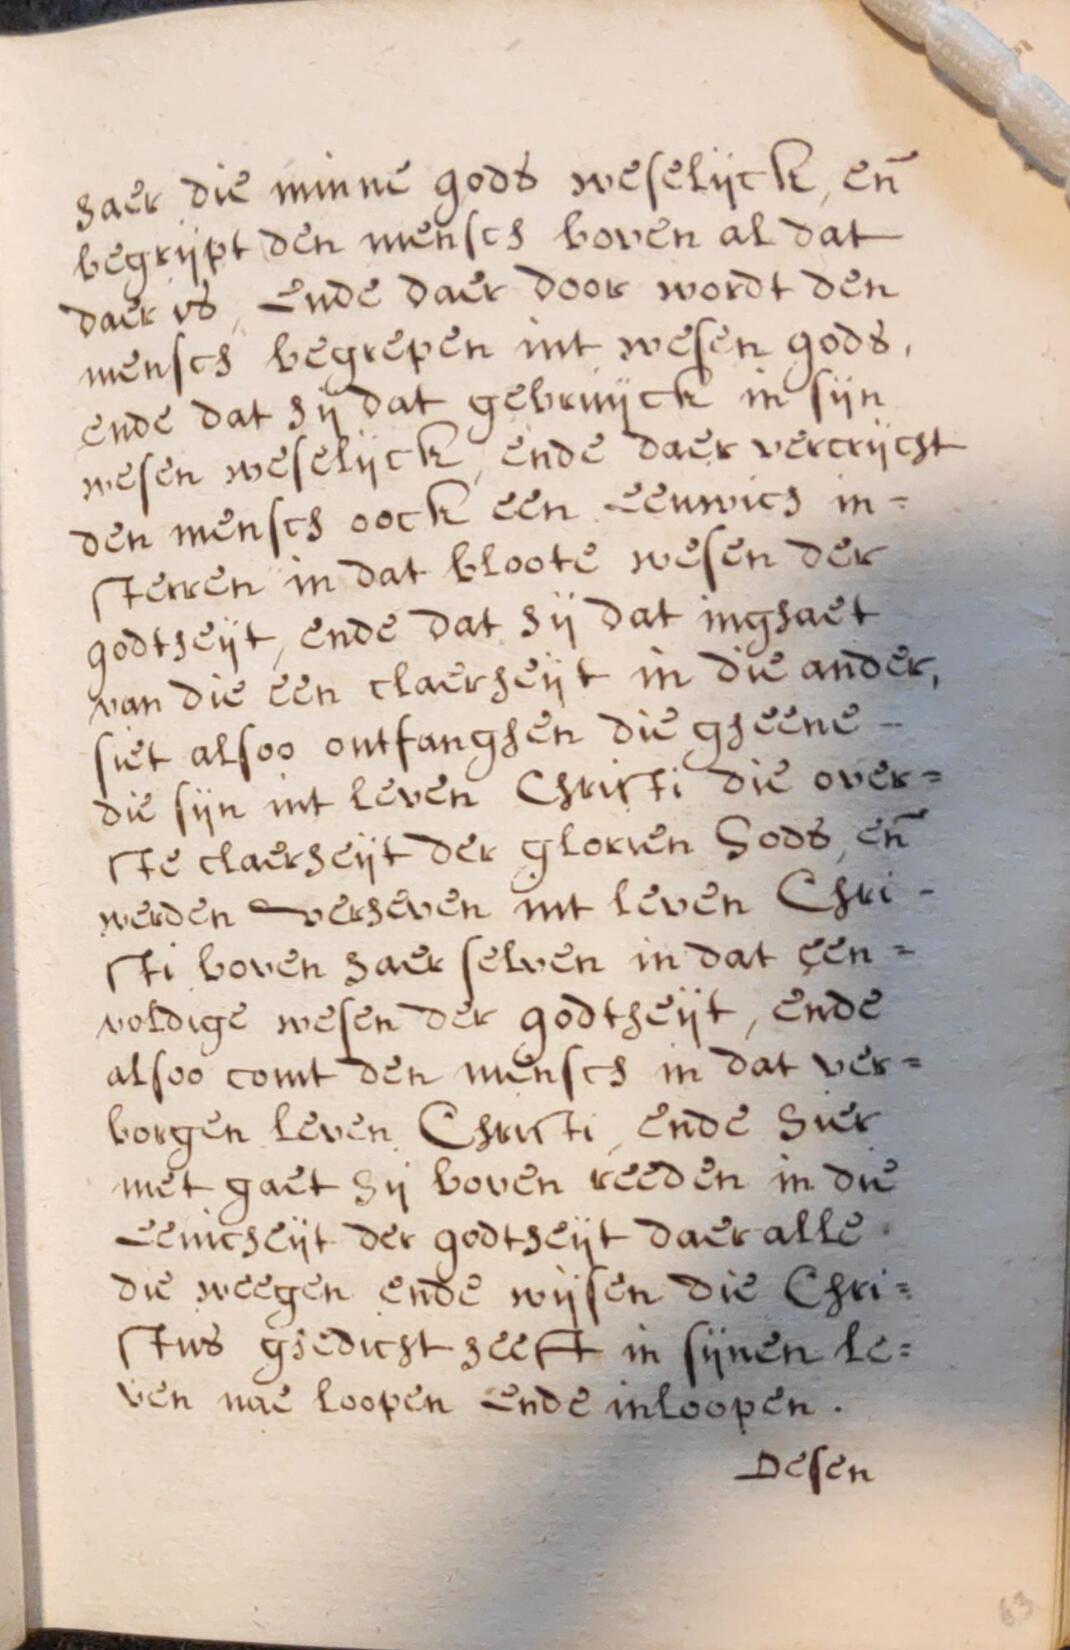 haer die minne gods weselijck, en̄
begrijpt den mensch boven al dat
daer is, Ende daer door wordt den
mensch begrepen int wesen gods,
ende dat hij dat gebruijck in sijn
wesen weselijck, ende daer vercrijcht
den mensch oock een Eeuwich in=
sterren in dat bloote wesen der
godtheijt, ende dat hij dat inghaet
van die een claerheijt in die ander,
siet alsoo ontfanghen die gheene -
die sijn int leven Christi die over=
ste claerheijt der glorien Gods, en̄
werden verheven int leven Chri -
sti boven haer selven in dat een=
voldige wesen der godtheijt, ende
alsoo comt den mensch in dat ver=
borgen leven Christi, ende hier
met gaet hij boven reeden in die
Eenicheijt der godtheijt daer alle
die weegen ende wijsen die Chri=
stus ghedicht heeft in sijnen le=
ven nae loopen Ende inloopen.
Desen
63